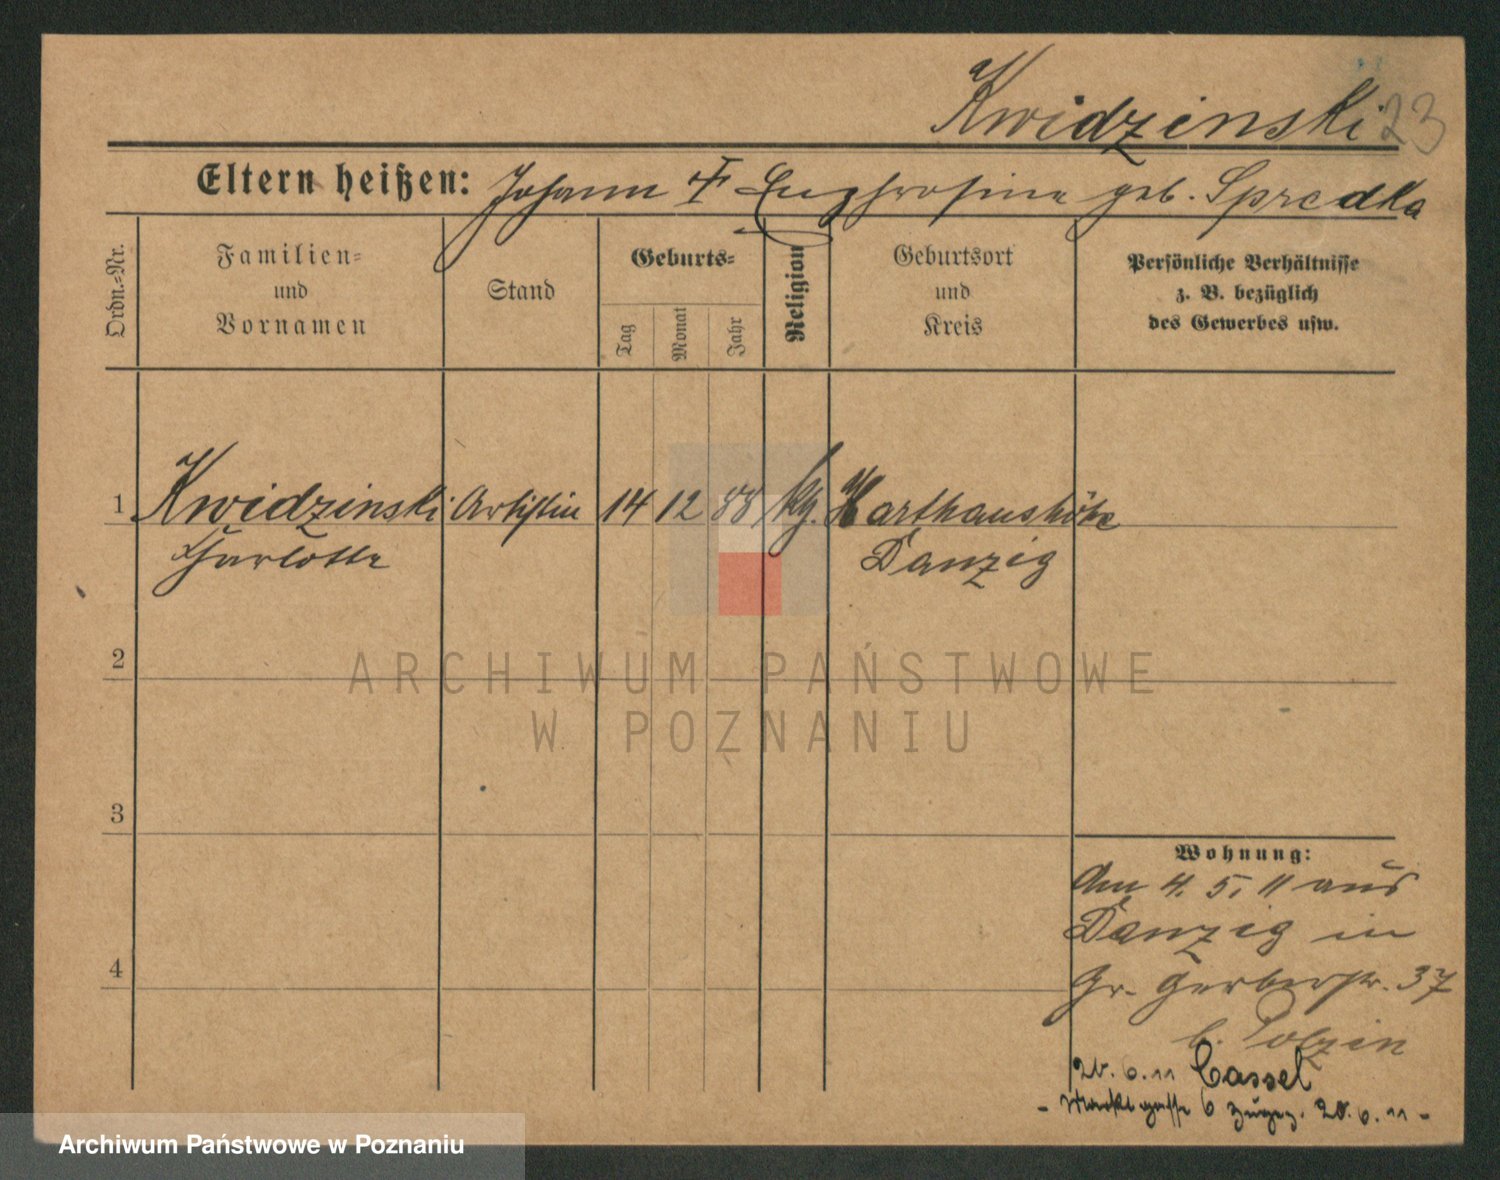 Kwidzinski 23
Eltern heißen: Johann † Euphrosine geb. Spredka
Ordn.-Nr.
Familien-
und
Vornamen
Stand
Geburts-
Tag
Monat
Jahr
Religion
Geburtsort
und
Kreis
Persönliche Verhältnisse
z. B. bezüglich
des Gewerbes usw.
1 Kwidzinski Artistin 14 12 88 kg.
Charlotte
Danzig
2
3
4
Wohnung:
Am 4. 5. 11 aus
Danzig in
Gr. Gerberstr. 37
b. Polzin
6. 11 Cassel
- Marktgasse 6 zugez. 6. 11 -
ARCHIWUM PAŃSTWOWE
W POZNANIU
Archiwum Państwowe w Poznaniu